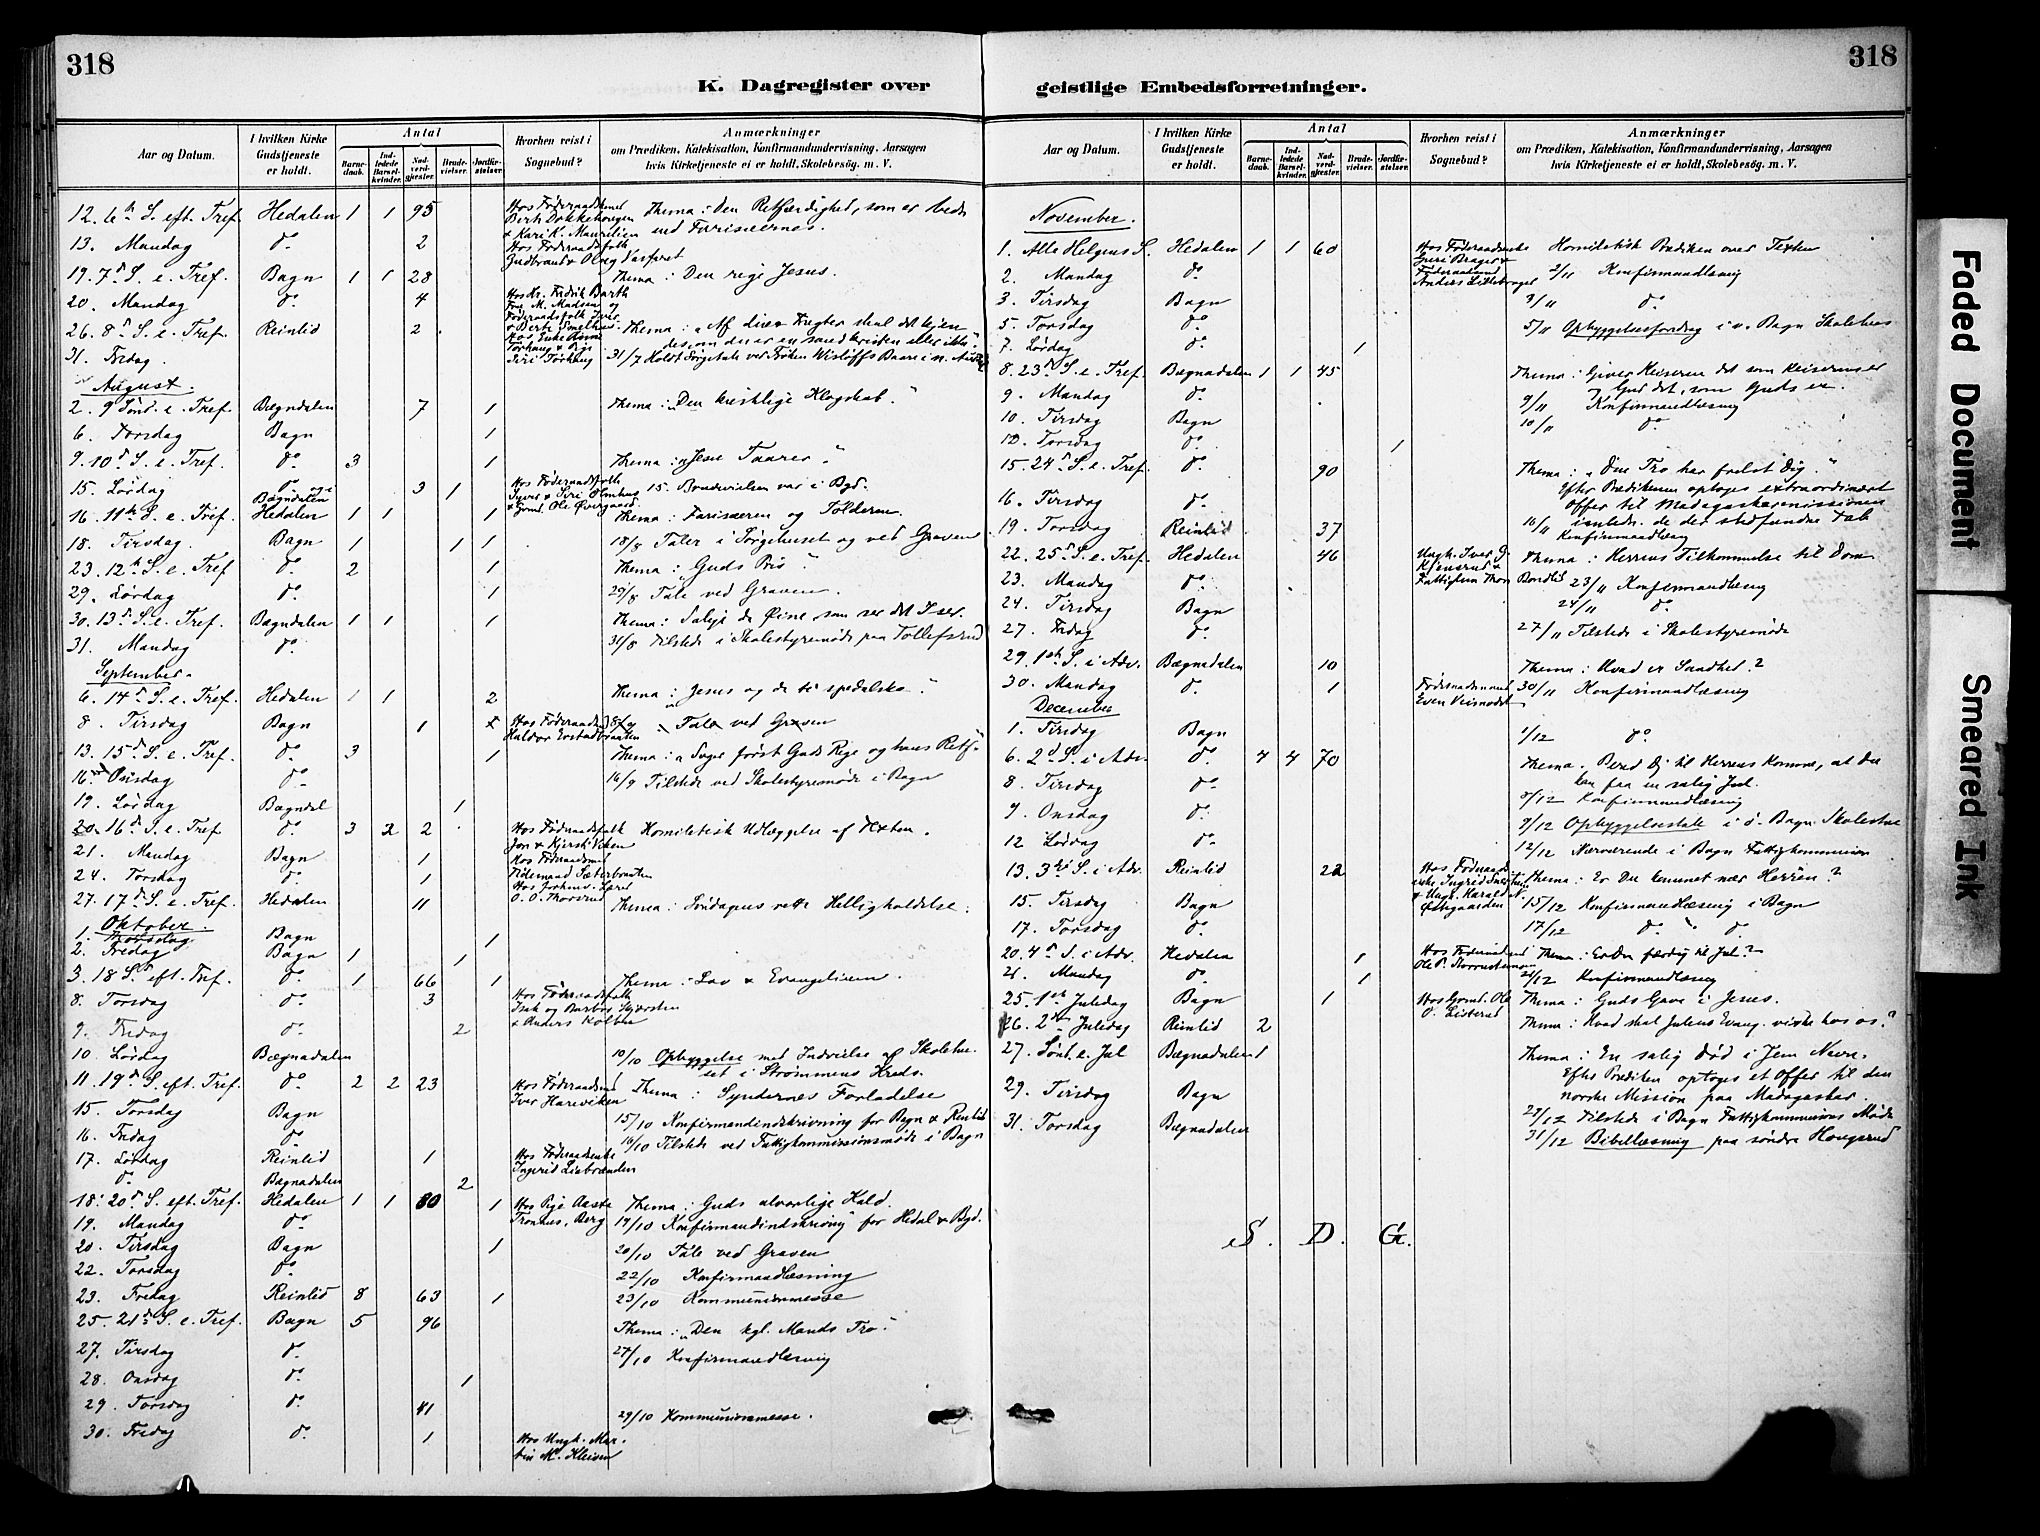 318
K. Dagregister over
Aar og Datum.
I hvilken Kirke Gudstjeneste er holdt.
Antal
Barnedaab.
Indledede Barselkvinder.
Nadverdgjester.
Brudevielser.
Jordfæstelser.
Hvorhen reist i Sognebud?
Anmærkninger
om Prædiken, Katekisation, Konfirmandundervisning, Aarsagen
hvis Kirketjeneste ei er holdt, Skolebesög. m. V.
12. 6te S. eft. Tref. Hedalen 1 1 95 Thema: Den Retfærdighed, som er bedre
end Farisæernes.
13. Mandag do 2 Hos Føderaadsfolk
19. 7de S. e. Tref. Bagn 1 1 28 Thema: Den rige Jesus.
20. Mandag do 4
26. 8de S. e. Tref. Reinlid 2 Thema: "Af dines Frugter skal det kjendes, om der er en sand kristen eller ikke"
31. Fredag
August.
2. 9 Sønd. e. Tref. Bægndalen 7 1 Thema: "Den kristelige Klogskab."
6. Torsdag Bagn 1
9. 10de S. e. Tref. do 3 1 Thema: "Jesu Taarer."
15. Lørdag do og i Bægndalen 3 1 15. Brudevielsen var i Bgd.
16. 11te S. e. Tref. Hedalen 1 1 1 Thema: Farisæeren og Tolderen.
18. Tirsdag Bagn 1 1 1 18/8 Taler i Sørgehuset og ved Graven
23. 12te S. e. Tref. do 2 1 Thema: "Guds Pris"
29. Lørdag do 1 29/8 Tale ved Graven.
30. 13de S. e. Tref. Bægndalen 1 1 1 Thema: Salige de Øine som ser det I ser.
31. Mandag do 31/8 Tilstede i Skolestyremøde paa Tollefsrud
September.
6. 14de S. e. Tref. Hedalen 1 1 2 Thema: "Jesus og de ti spedalske."
8. Tirsdag Bagn 1 Tale ved Graven
13. 15de S. e. Tref. do 3 1 Thema: "Søger først Guds Rige og hans Retf."
16. Onsdag do 16/9 Tilstede ved Skolestyremøde i Bagn
19. Lørdag Bægndal 1
20. 16de S. e. Tref. do 3 2 2 Hos Føderaadsfolk Homiletisk Udlæggelse af Texten.
21. Mandag Bagn 1
24. Torsdag do 1
27. 17de S. e. Tref. Hedalen 11 Thema: Søndagens rette Helligholdelse.
Oktober.
1. Torsdag Bagn 1
2. Fredag Bagn 1 1
3. 18 S. eft. Tref. do 1 66 1 Thema: Lov & Evangelium
8. Torsdag do 3 Hos Føderaadsfolk
9. Fredag do 2
10. Lørdag Bægnadalen 10/10 Opbyggelse med Indvielse af Skolehuset i Strømmens Kreds.
11. 19de S. eft. Tref. do 2 2 23 Thema: Syndernes Forladelse
15. Torsdag Bagn 15/10 Konfirmandindskrivning for Bagn & Reinlid
16. Fredag do 16/10 Tilstede ved Fattigkommissionsmøde i Bagn
17. Lørdag Reinlid 1 Hos Føderaadsenke
do Bægnadalen 2
18. 20de S. eft. Tref. Hedalen 1 1 80 1 Hos Pige Aaste Thema: Guds alvorlige Kald.
19. Mandag do 19/10 Konfirmandindskrivng for Hedal & Bgd.
20. Tirsdag Bagn 1 20/10 Tale ved Graven
22. Torsdag do 22/10 Konfirmandlæsning
23. Fredag Reinlid 8 63 1 23/10 Kommunionmesse
25. 21de S. e. Tref. Bagn 5 96 Thema: "Den kgl. Mands Tro."
27. Tirsdag do 27/10 Konfirmandlæsning
28. Onsdag do 1
29. Torsdag do 41 29/10 Kommunionmesse.
30. Fredag do 1 Hos Ungk. Martin M. Kleiven
318
geistlige Embedsforretninger.
Aar og Datum.
I hvilken Kirke Gudstjeneste er holdt.
Antal
Barnedaab.
Indledede Barselkvinder.
Nadverdgjester.
Brudevielser.
Jordfæstelser.
Hvorhen reist i Sognebud?
Anmærkninger
om Prædiken, Katekisation, Konfirmandundervisning, Aarsagen
hvis Kirketjeneste ei er holdt, Skolebesög. m. V.
November.
1. Alle Helgens S. Hedalen 1 1 60 Hos Føderaadsenke Homiletisk Prædiken over Texten
2. Mandag do 2/11 Konfirmandlæsning
3. Tirsdag Bagn 3/11 do
5. Torsdag do 5/11 Opbyggelsesforedrag i v. Bagn Skolehus
7. Lørdag do 1
8. 23de S. e. Tref. Bægnadalen 1 1 45 Thema: Giver Keiseren det som Keiserens er
og Gud det, som Guds er.
9. Mandag do 9/11 Konfirmandlæsning
10. Tirsdag Bagn 10/11 do
12. Torsdag do 1
15. 24de S. e. Tref. do 90 Thema: "Din Tro har frelst Dig."
Efter Prædikenen optoges extraordinært
Offer til Madagaskarmissionen
16. Tirsdag do 16/11 Konfirmandlæsng
19. Torsdag Reinlid 37
22. 25de S. e. Tref. Hedalen 46 Thema: Herrens Tilkommelse til Dom
23. Mandag do 23/11 Konfirmandlæsng
24. Tirsdag Bagn 24/11 do
27. Fredag do 27/11 Tilstede i Skolestyremøde
29. 1ste S. i Adv. Bægnadalen 10 Thema: Hvad er Sandhed?
30. Mandag do 1 30/11 Konfirmandlæsning
December
1. Tirsdag Bagn 1/12 do
6. 2den S. i Adv. do 4 4 70 Thema. Bered Dig til Herrens Komme, at Du
kan faa en salig Jul.
8. Tirsdag do 8/12 Konfirmandlæsning
9. Onsdag do 9/12 Opbyggelsestale i ø. Bagn Skolehus
12 Lørdag do 12/12 Nærværende i Bagn Fattigkommission
13. 3die S. i Adv. Reinlid 22 Thema: Er Du kommet nær Herren?
15. Tirsdag Bagn 15/12 Konfirmandlæsning i Bagn
17. Torsdag do 17/12 do " do
20. 4de S. i Adv. Hedalen 1 Thema: Er Du færdig til Jul?
21. Mandag do 1 21/12 Konfirmandlæsng
25. 1ste Juledag Bagn 1 Thema: Guds Gave i Jesus.
26. 2den Juledag Reinlid 2 Thema: Hvad skal Julens Evang. virke hos os?
27. Sønd. e. Jul Bægnadalen 1 Thema: En salig Død i Jesu Navn.
Efter Prædiken optoges et Offer til den
norske Mission paa Madagaskar.
29. Tirsdag Bagn 29/12 Tilstede i Bagn Fattigkommissions Møde
31. Torsdag Bægnadalen 31/12 Bibellæsning paa søndre Haugsrud
S. D. G.
Faded Document
Smeared Ink